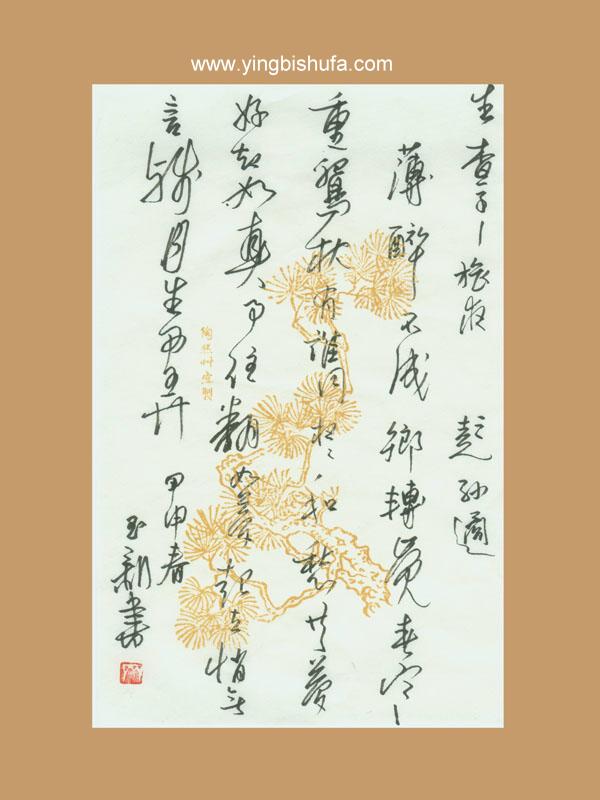 www.yingbishufa.com
生查子－旅夜 彭孙遹
薄醉不成鄉轉覺春寒
重鴛枕有誰同夜夜和愁共夢
好却如真事往翻如夢起立悄無
言殘月生西弄 甲申春
玉新書